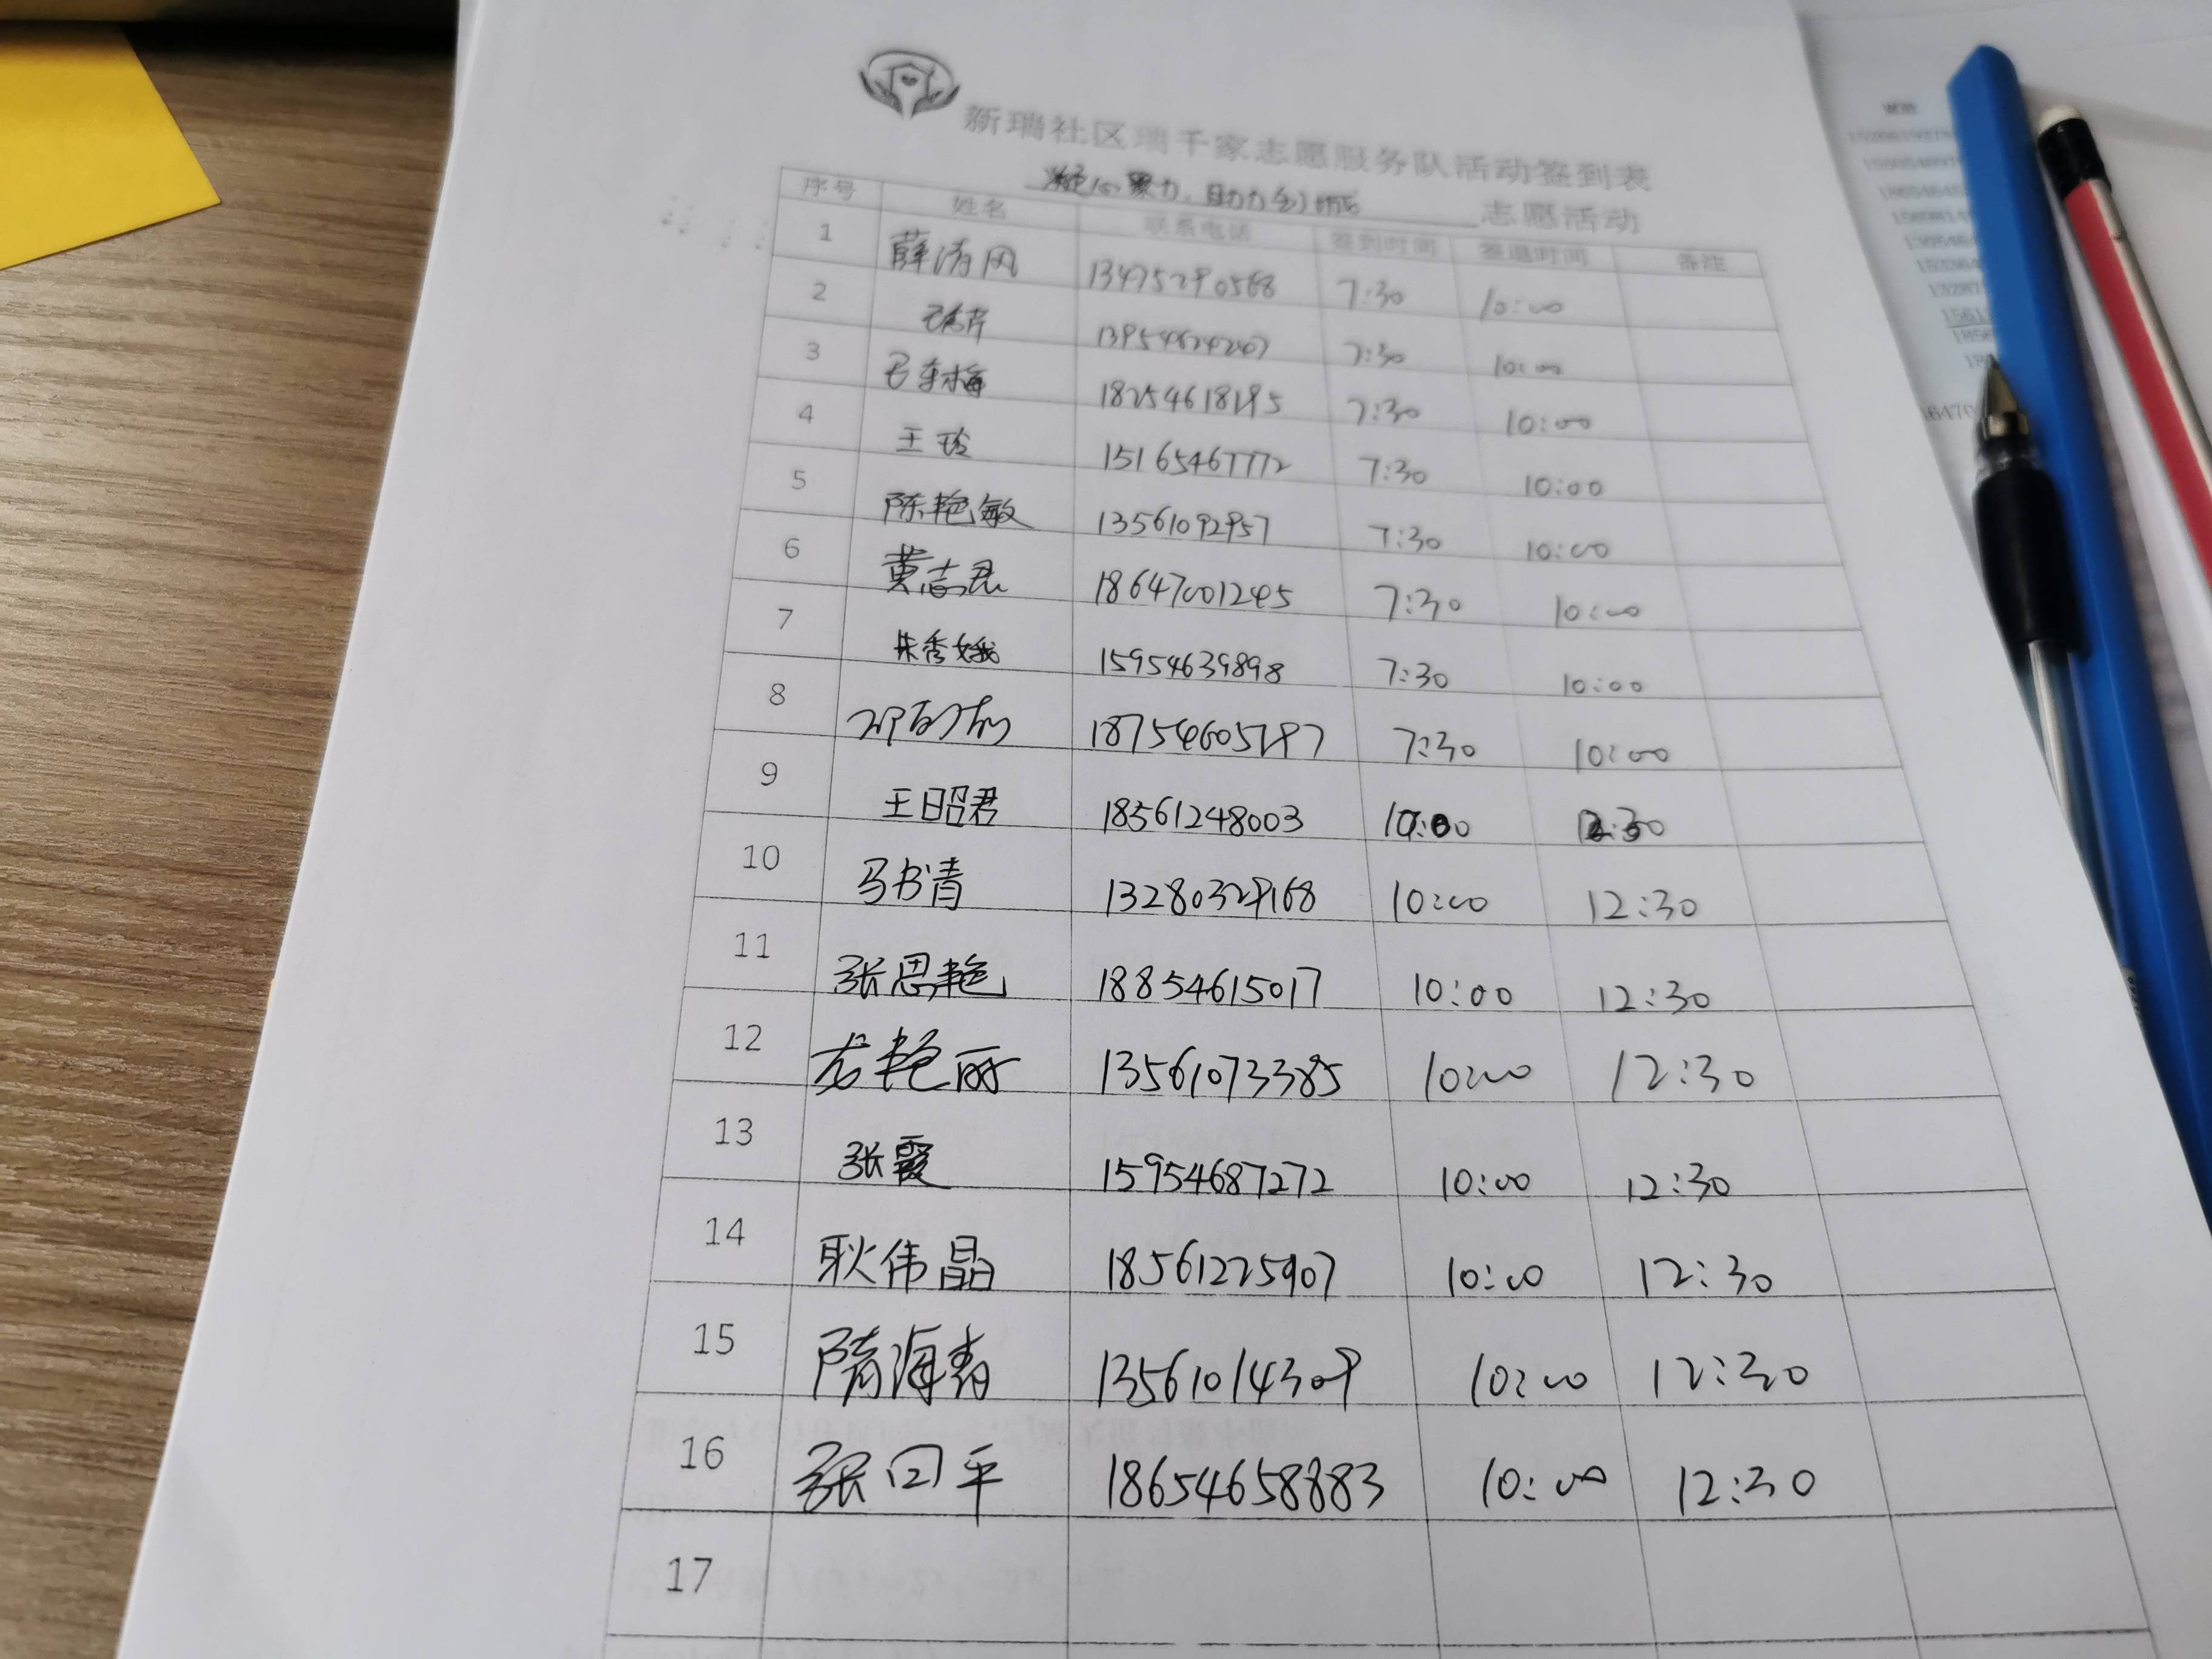 新瑞社区瑞千家志愿服务队活动签到表
凝心聚力,助力创城 志愿活动
序号 姓名 联系电话 签到时间 签退时间 备注
1 薛涛风 13475290568 7:30 10:00
2 13954624267 7:30 10:00
3 18254618195 7:30 10:00
4 王玲 15165467772 7:30 10:00
5 陈艳敏 13561092957 7:30 10:00
6 黄志君 18647001245 7:30 10:00
7 朱秀娥 15954639898 7:30 10:00
8 18754605797 7:30 10:00
9 王昭君 18561248003 10:00 12:30
10 马书青 13280329168 10:00 12:30
11 张思艳 18854615017 10:00 12:30
12 尤艳丽 13561073385 10:00 12:30
13 张霞 15954687272 10:00 12:30
14 耿伟晶 18561225907 10:00 12:30
15 隋海青 13561014309 10:00 12:30
16 张回平 18654658883 10:00 12:30
17